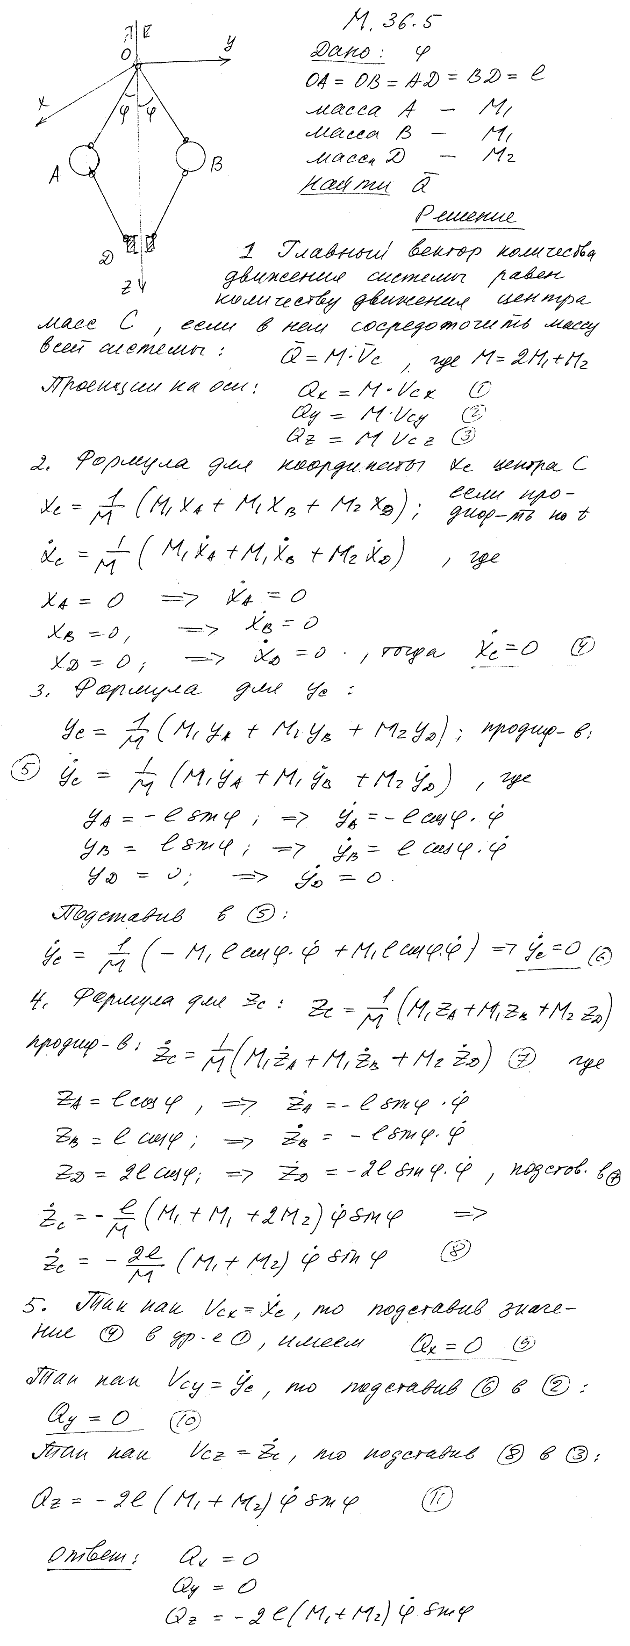 М. 36.5
Дано: φ
OA = OB = AD = BD = l
масса A — M₁
масса B — M₁
масса D — M₂
Найти Q̄
Решение
O
y
x
φ φ
A
B
D
z
1 Главный вектор количества
движения системы равен
количеству движения центра
масс C, если в нем сосредоточить массу
всей системы: Q̄ = M·V̄c, где M = 2M₁ + M₂
Проекции на оси: Qx = M·Vcx ①
Qy = M·Vcy ②
Qz = M Vcz ③
2. Формула для координаты xc центра C
xc = 1/M (M₁xA + M₁xB + M₂xD); если про-
диф-ть по t
ẋc = 1/M (M₁ẋA + M₁ẋB + M₂ẋD), где
xA = 0 => ẋA = 0
xB = 0, => ẋB = 0
xD = 0; => ẋD = 0, тогда ẋc = 0 ④
3. Формула для yc:
yc = 1/M (M₁yA + M₁yB + M₂yD); продиф-в:
⑤ ẏc = 1/M (M₁ẏA + M₁ẏB + M₂ẏD), где
yA = -l sinφ; => ẏA = -l cosφ·φ̇
yB = l sinφ; => ẏB = l cosφ·φ̇
yD = 0; => ẏD = 0.
Подставив в ⑤:
ẏc = 1/M (-M₁ l cosφ·φ̇ + M₁ l cosφ·φ̇) => ẏc = 0 ⑥
4. Формула для zc: zc = 1/M (M₁zA + M₁zB + M₂zD)
продиф-в: żc = 1/M (M₁żA + M₁żB + M₂żD) ⑦ где
zA = l cosφ, => żA = -l sinφ·φ̇
zB = l cosφ; => żB = -l sinφ·φ̇
zD = 2l cosφ; => żD = -2l sinφ·φ̇, подстов. в ⑦
żc = -l/M (M₁ + M₁ + 2M₂) φ̇ sinφ =>
żc = -2l/M (M₁ + M₂) φ̇ sinφ ⑧
5. Так как Vcx = ẋc, то подставив значе-
ние ④ в ур-е ①, имеем Qx = 0 ⑨
Так как Vcy = ẏc, то подставив ⑥ в ②:
Qy = 0 ⑩
Так как Vcz = żc, то подставив ⑧ в ③:
Qz = -2l (M₁ + M₂) φ̇ sinφ ⑪
Ответ: Qx = 0
Qy = 0
Qz = -2l(M₁ + M₂) φ̇·sinφ